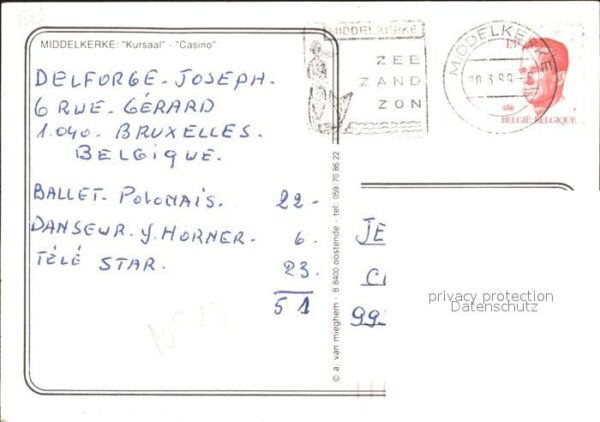 MIDDELKERKE: "Kursaal" - "Casino"
DELFORGE. JOSEPH.
6 RUE. GÉRARD
1.040. BRUXELLES.
BELGIQUE.
BALLET. POLONAIS. 22-
DANSEUR. Y. HORNER. 6.
TÉLÉ STAR. 23.
51
© a. van mieghem - B 8400 oostende - tel: 059-70 86 22
MIDDELKERKE
ZEE
ZAND
ZON
MIDDELKERKE
13
BELGIË-BELGIQUE
JE
C
99
privacy protection
Datenschutz